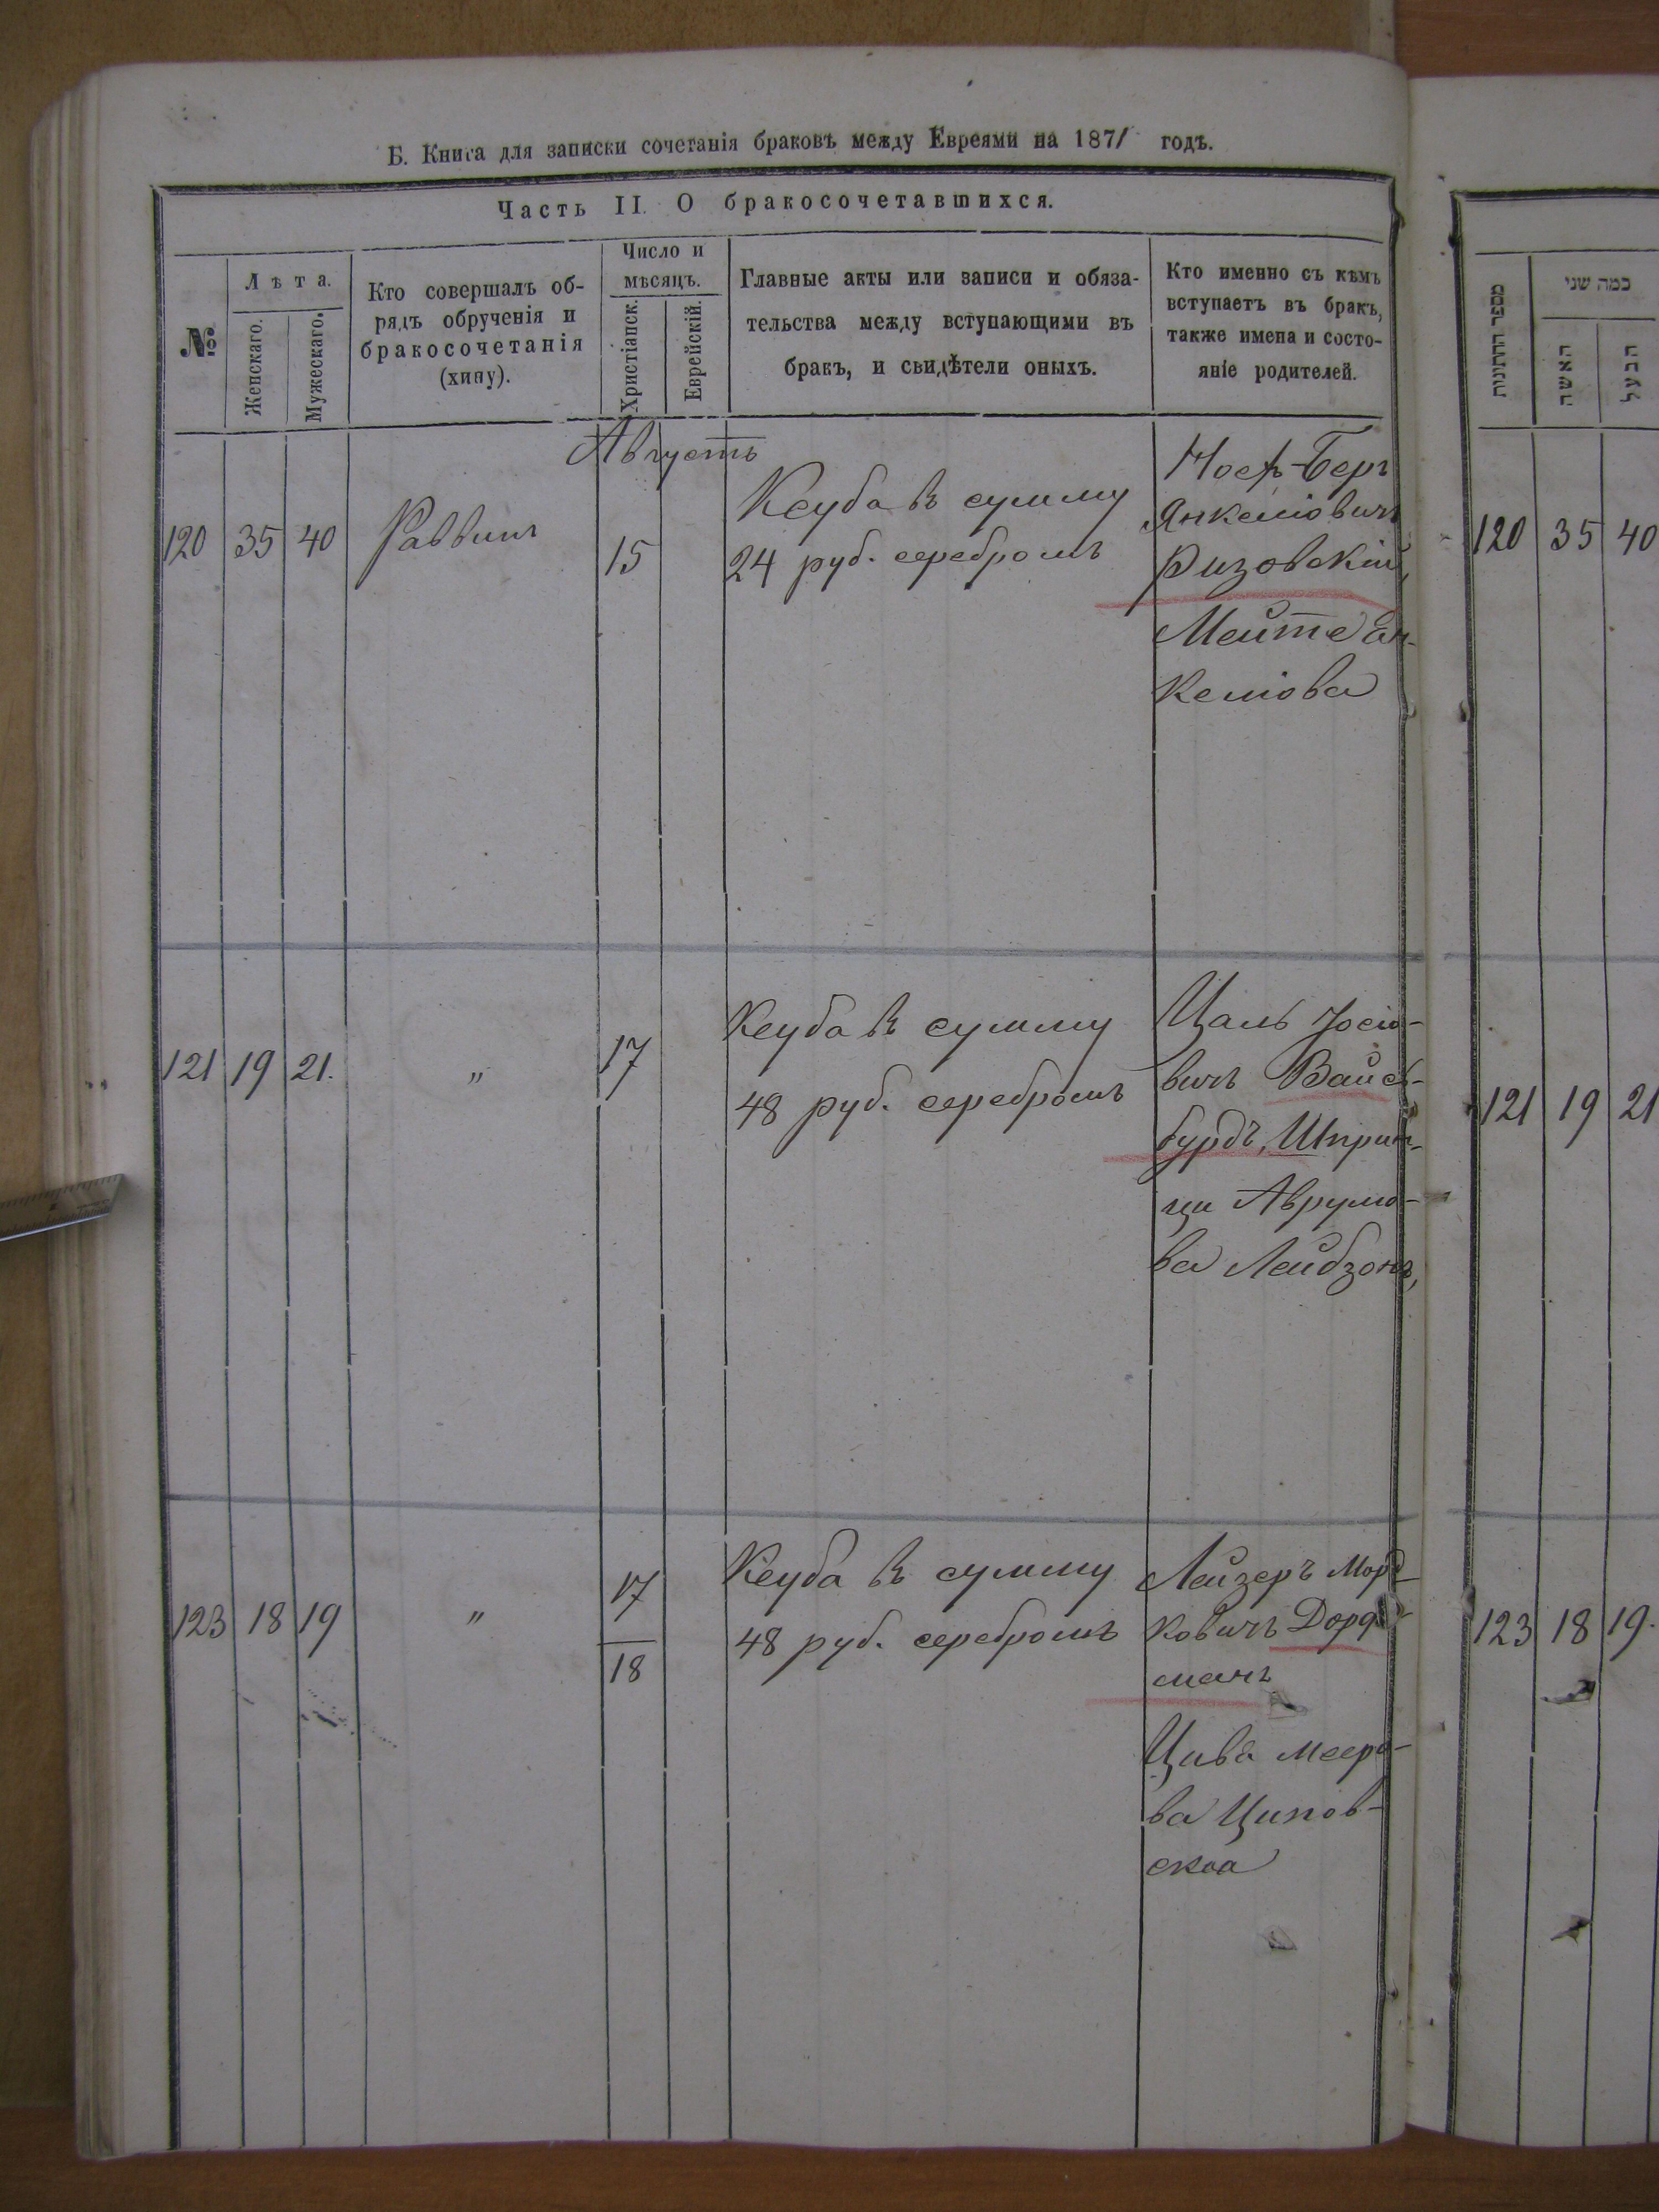 Б. Книга для записки сочетанія браковъ между Евреями на 1871 годъ.
Часть II. О бракосочетавшихся.
№
Лѣта.
Женскаго.
Мужескаго.
Кто совершалъ об-
рядъ обрученія и
бракосочетанія
(хипу).
Число и
мѣсяцъ.
Христіанск.
Еврейскій.
Главные акты или записи и обяза-
тельства между вступающими въ
бракъ, и свидѣтели оныхъ.
Кто именно съ кѣмъ
вступаетъ въ бракъ,
также имена и состо-
яніе родителей.
Августъ
120 35 40 Раввинъ 15
Кеуба въ сумму
24 руб. серебромъ
Иосъ-Беръ
Янкеліовичъ
Ризовскій,
Мейте Ян-
келіова
121 19 21. " 17
Кеуба въ сумму
48 руб. серебромъ
Цаль Іосіо-
вичъ Вайс-
бурдъ, Шприн-
ци Аврумо-
ва Лейбзонъ,
123 18 19 " 17
18
Кеуба въ сумму
48 руб. серебромъ
Лейзеръ Мор-
ковичъ Дорф-
манъ
Цива Мееро-
ва Ципов-
скаа
מספר החתונות
כמה שני
האשה
הבעל
120 35 40
121 19 21
123 18 19.